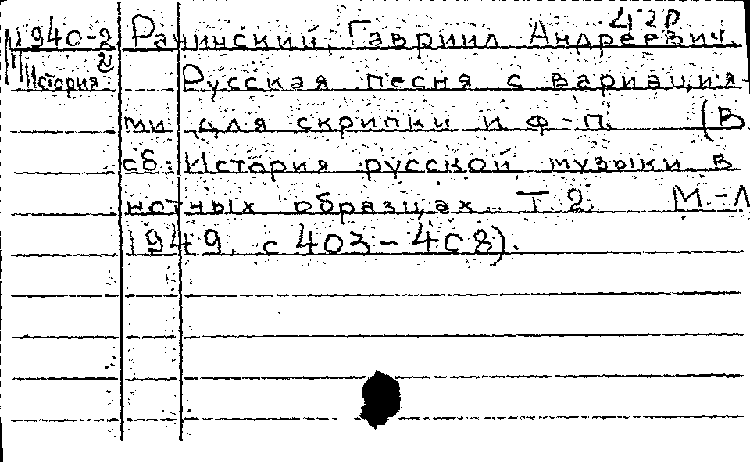 Ц2р
Ш940-2 Рачинский, Гавриил Андреевич.
История Русская песня с вариация
ми для скрипки и ф-п. (В
сб: История русской музыки в
нотных образцах. Т.2. М.-Л
1949. с 403-408).